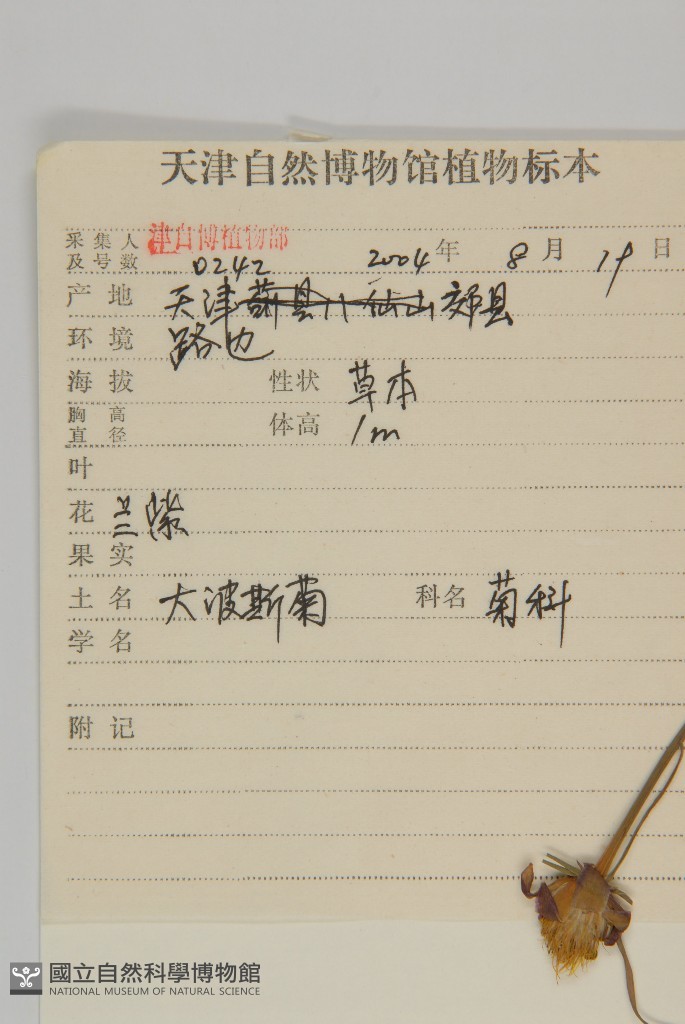 天津自然博物馆植物标本
采集人 津自博植物部
及号数 0242 2004年 8月 19日
产地 天津蓟县八仙山郊县
环境 路边
海拔 性状 草本
胸高
直径 体高 1m
叶
花 兰紫
果实
土名 大波斯菊 科名 菊科
学名
附记
國立自然科學博物館
NATIONAL MUSEUM OF NATURAL SCIENCE